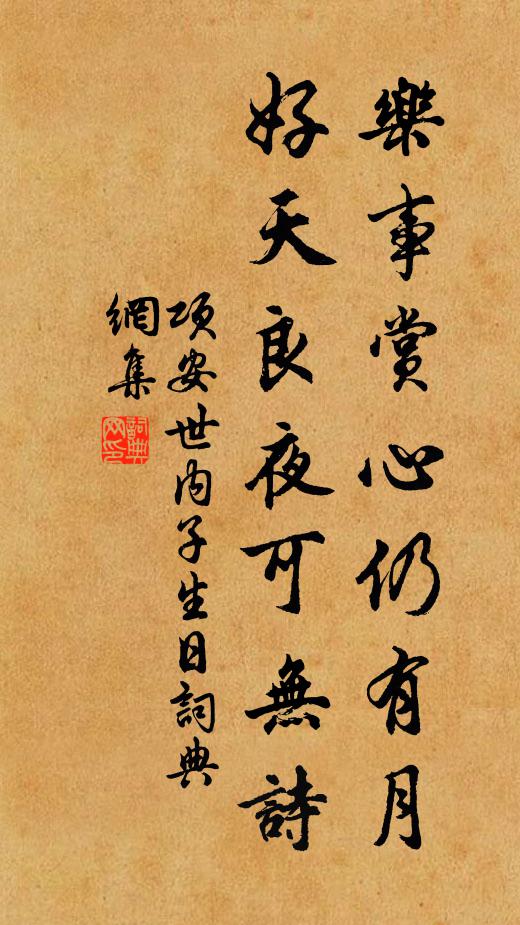 樂事賞心仍有月
好天良夜可無詩
項安世內子生日詞典
網集
詞典網印